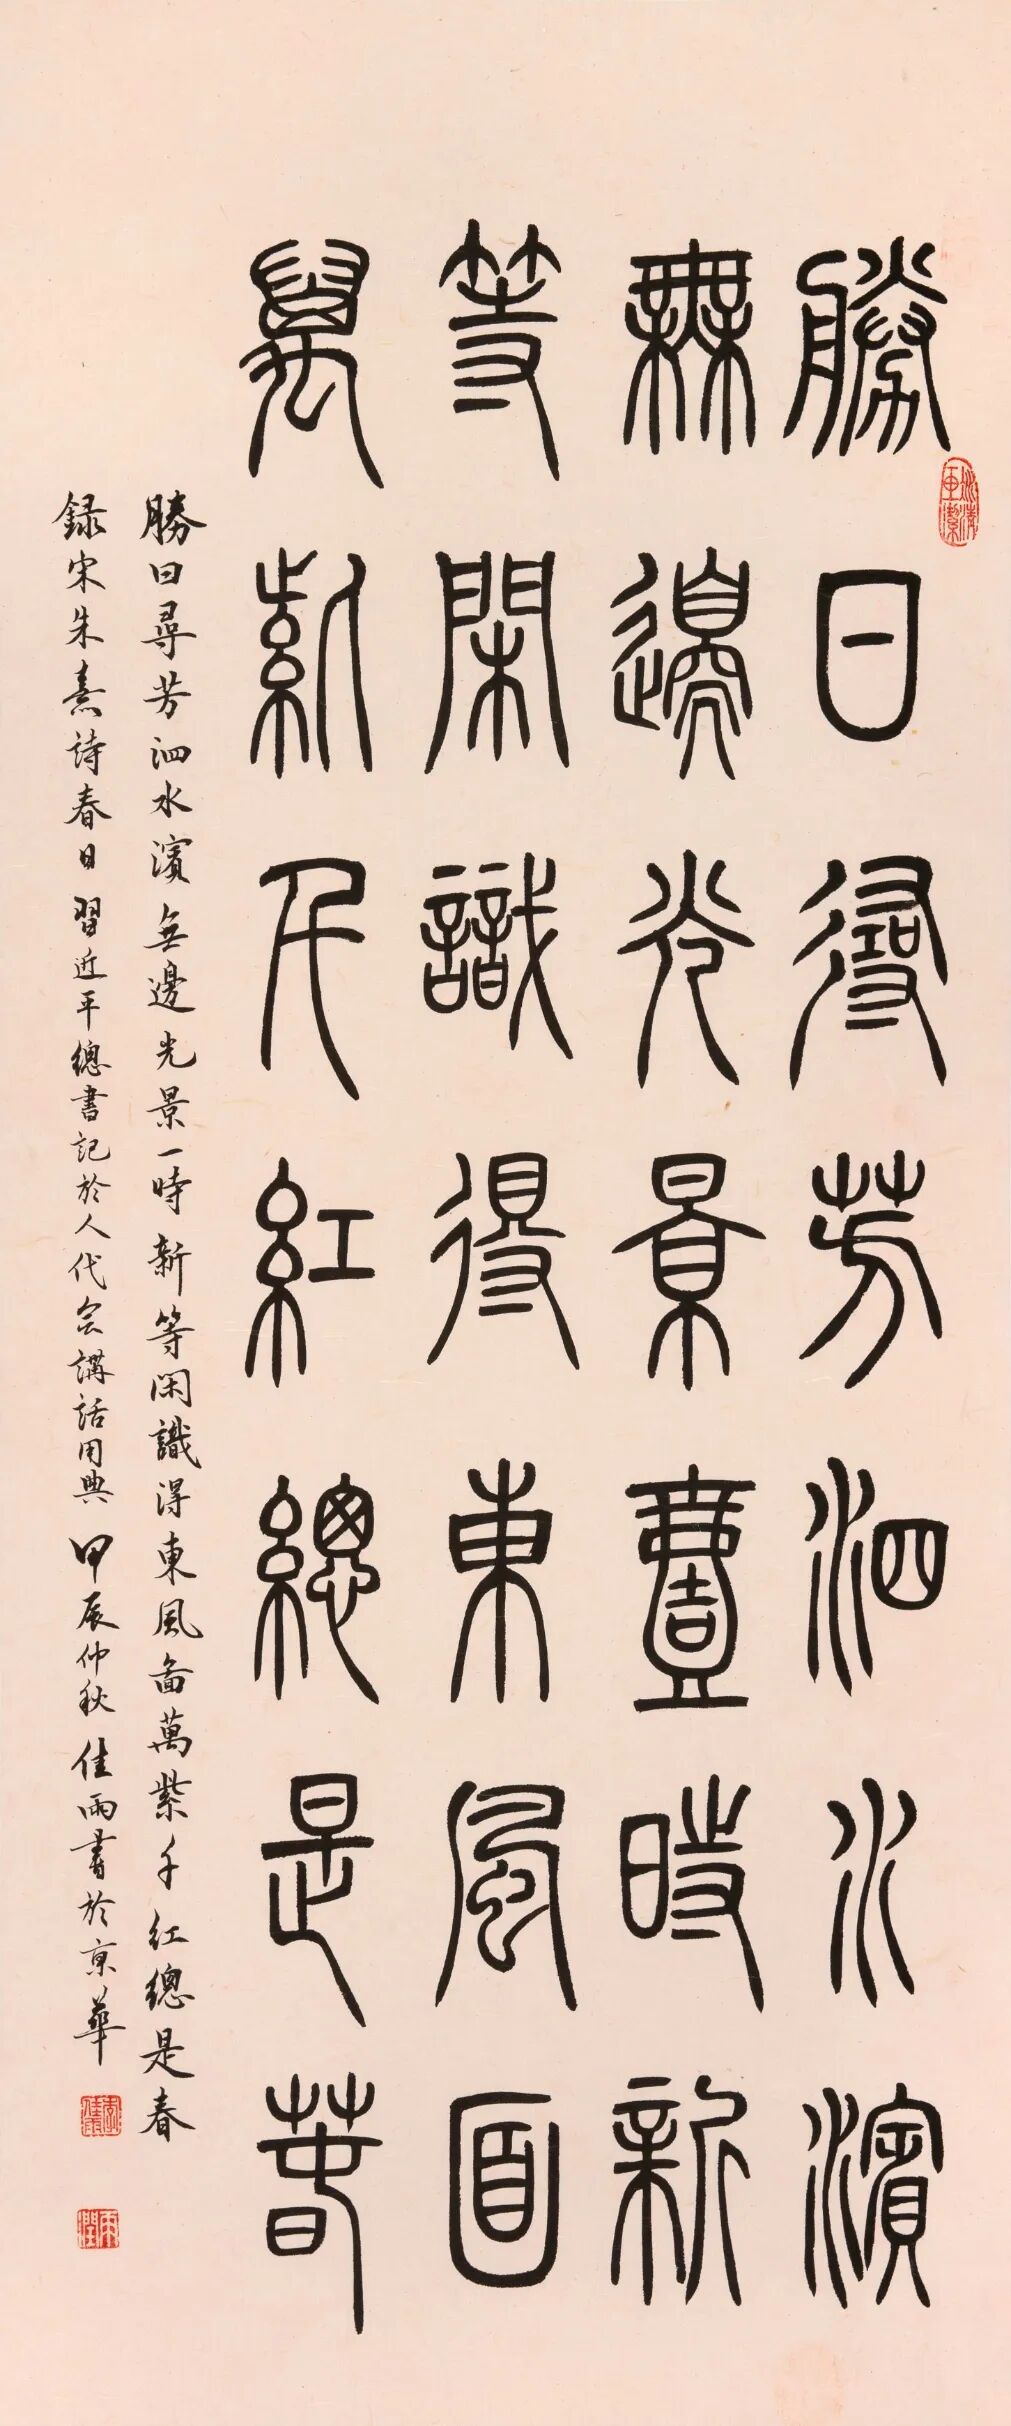 勝日尋芳泗水濱
無邊光景壹時新
等閑識得東風面
萬紫千紅總是春
勝日尋芳泗水濱無邊光景一時新等閑識得東風面萬紫千紅總是春
録宋朱熹詩春日習近平總書記於人代会講話用典甲辰仲秋佳雨書於京華